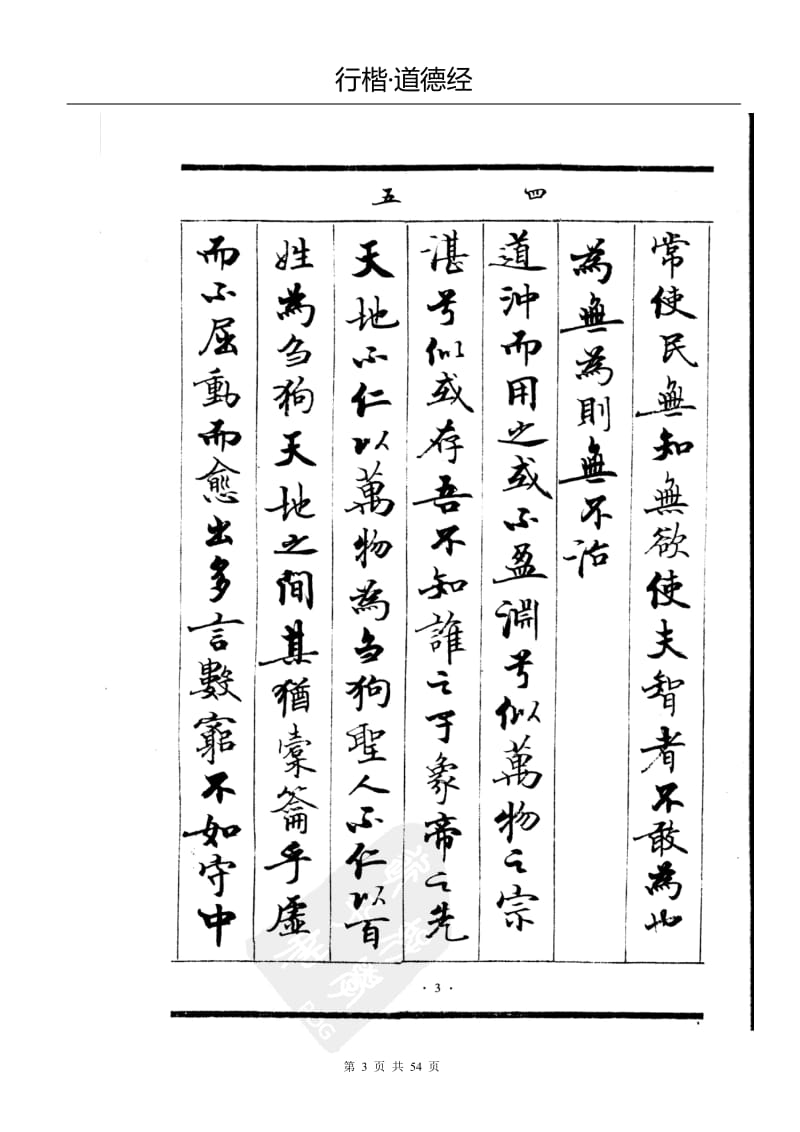 行楷·道德经
四
五
常使民無知無欲使夫智者不敢為也
為無為則無不治
道沖而用之或不盈淵兮似萬物之宗
湛兮似或存吾不知誰之子象帝之先
天地不仁以萬物為刍狗聖人不仁以百
姓為刍狗天地之間其猶橐籥乎虛
而不屈動而愈出多言數窮不如守中
· 3 ·
第 3 页 共 54 页